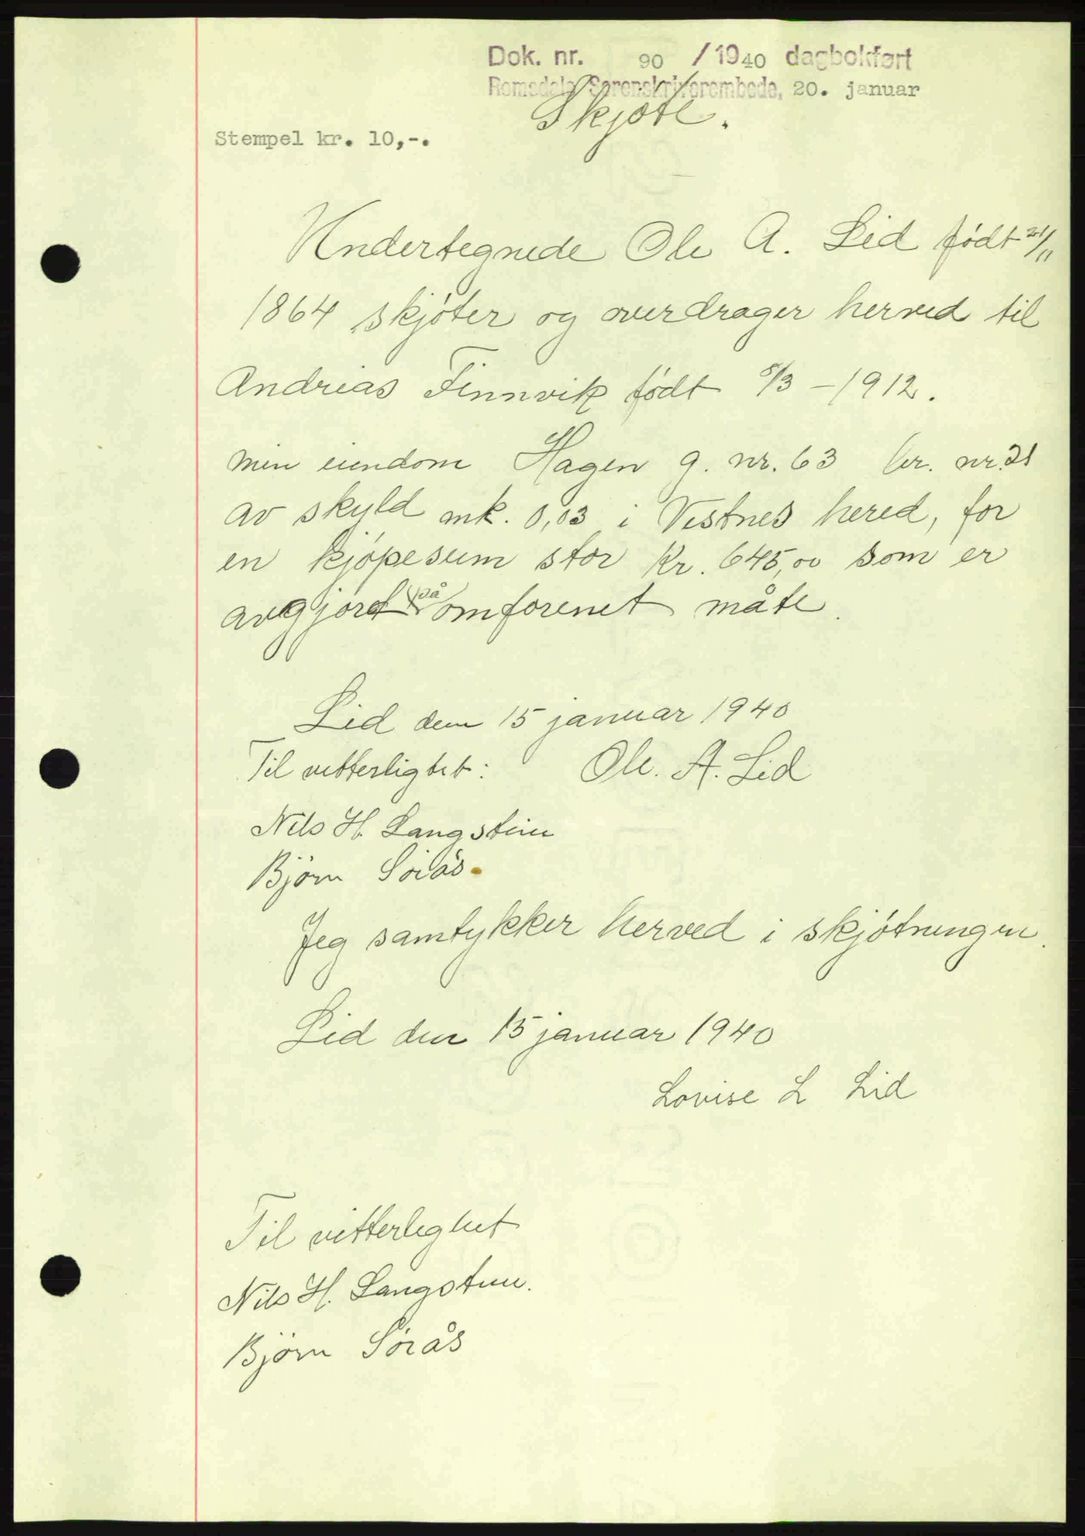 Dok. nr. 90 / 1940 dagbokført
Romsdals Sorenskriverembede, 20. januar
Skjøte.
Stempel kr. 10,-.
Undertegnede Ole A. Lid født 21/11
1864 skjøter og overdrager herved til
Andreas Finnvik født 8/3 - 1912.
min eiendom Hagen g. nr. 63 br. nr. 21
av skyld mk. 0,03 i Vestnes hered, for
en kjøpesum stor Kr. 645,00 som er
avgjord på omforenet måte.
Lid den 15 januar 1940
Til vitterlighet: Ole. A. Lid
Nils H. Langstein
Bjørn Sörås.
Jeg samtykker herved i skjøtningen.
Lid den 15 januar 1940
Lovise L Lid
Til vitterleghet
Nils H. Langstein.
Bjørn Sörås